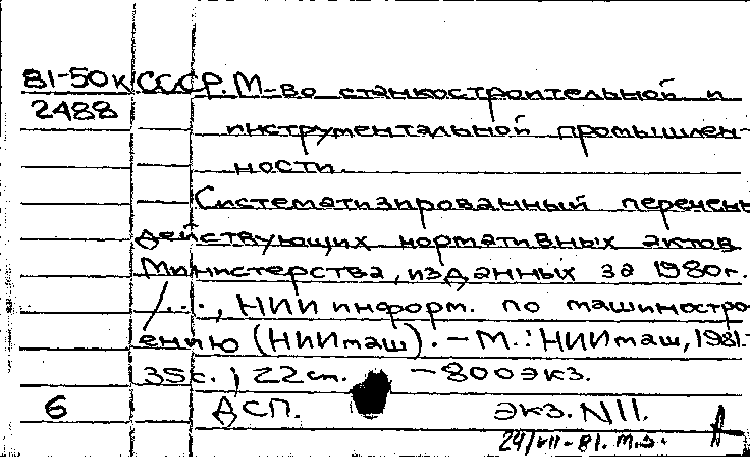 81-50к СССР. М-во станкостроительной и
2488
инструментальной промышлен-
ности.
Систематизированный перечень
действующих нормативных актов
Министерства, изданных за 1980г.
/..., НИИ информ. по машиностро
ению (НИИмаш). — М.: НИИмаш, 1981-
35с.; 22см. — 800экз.
6 ДСП. экз. N11.
24/VII-81.